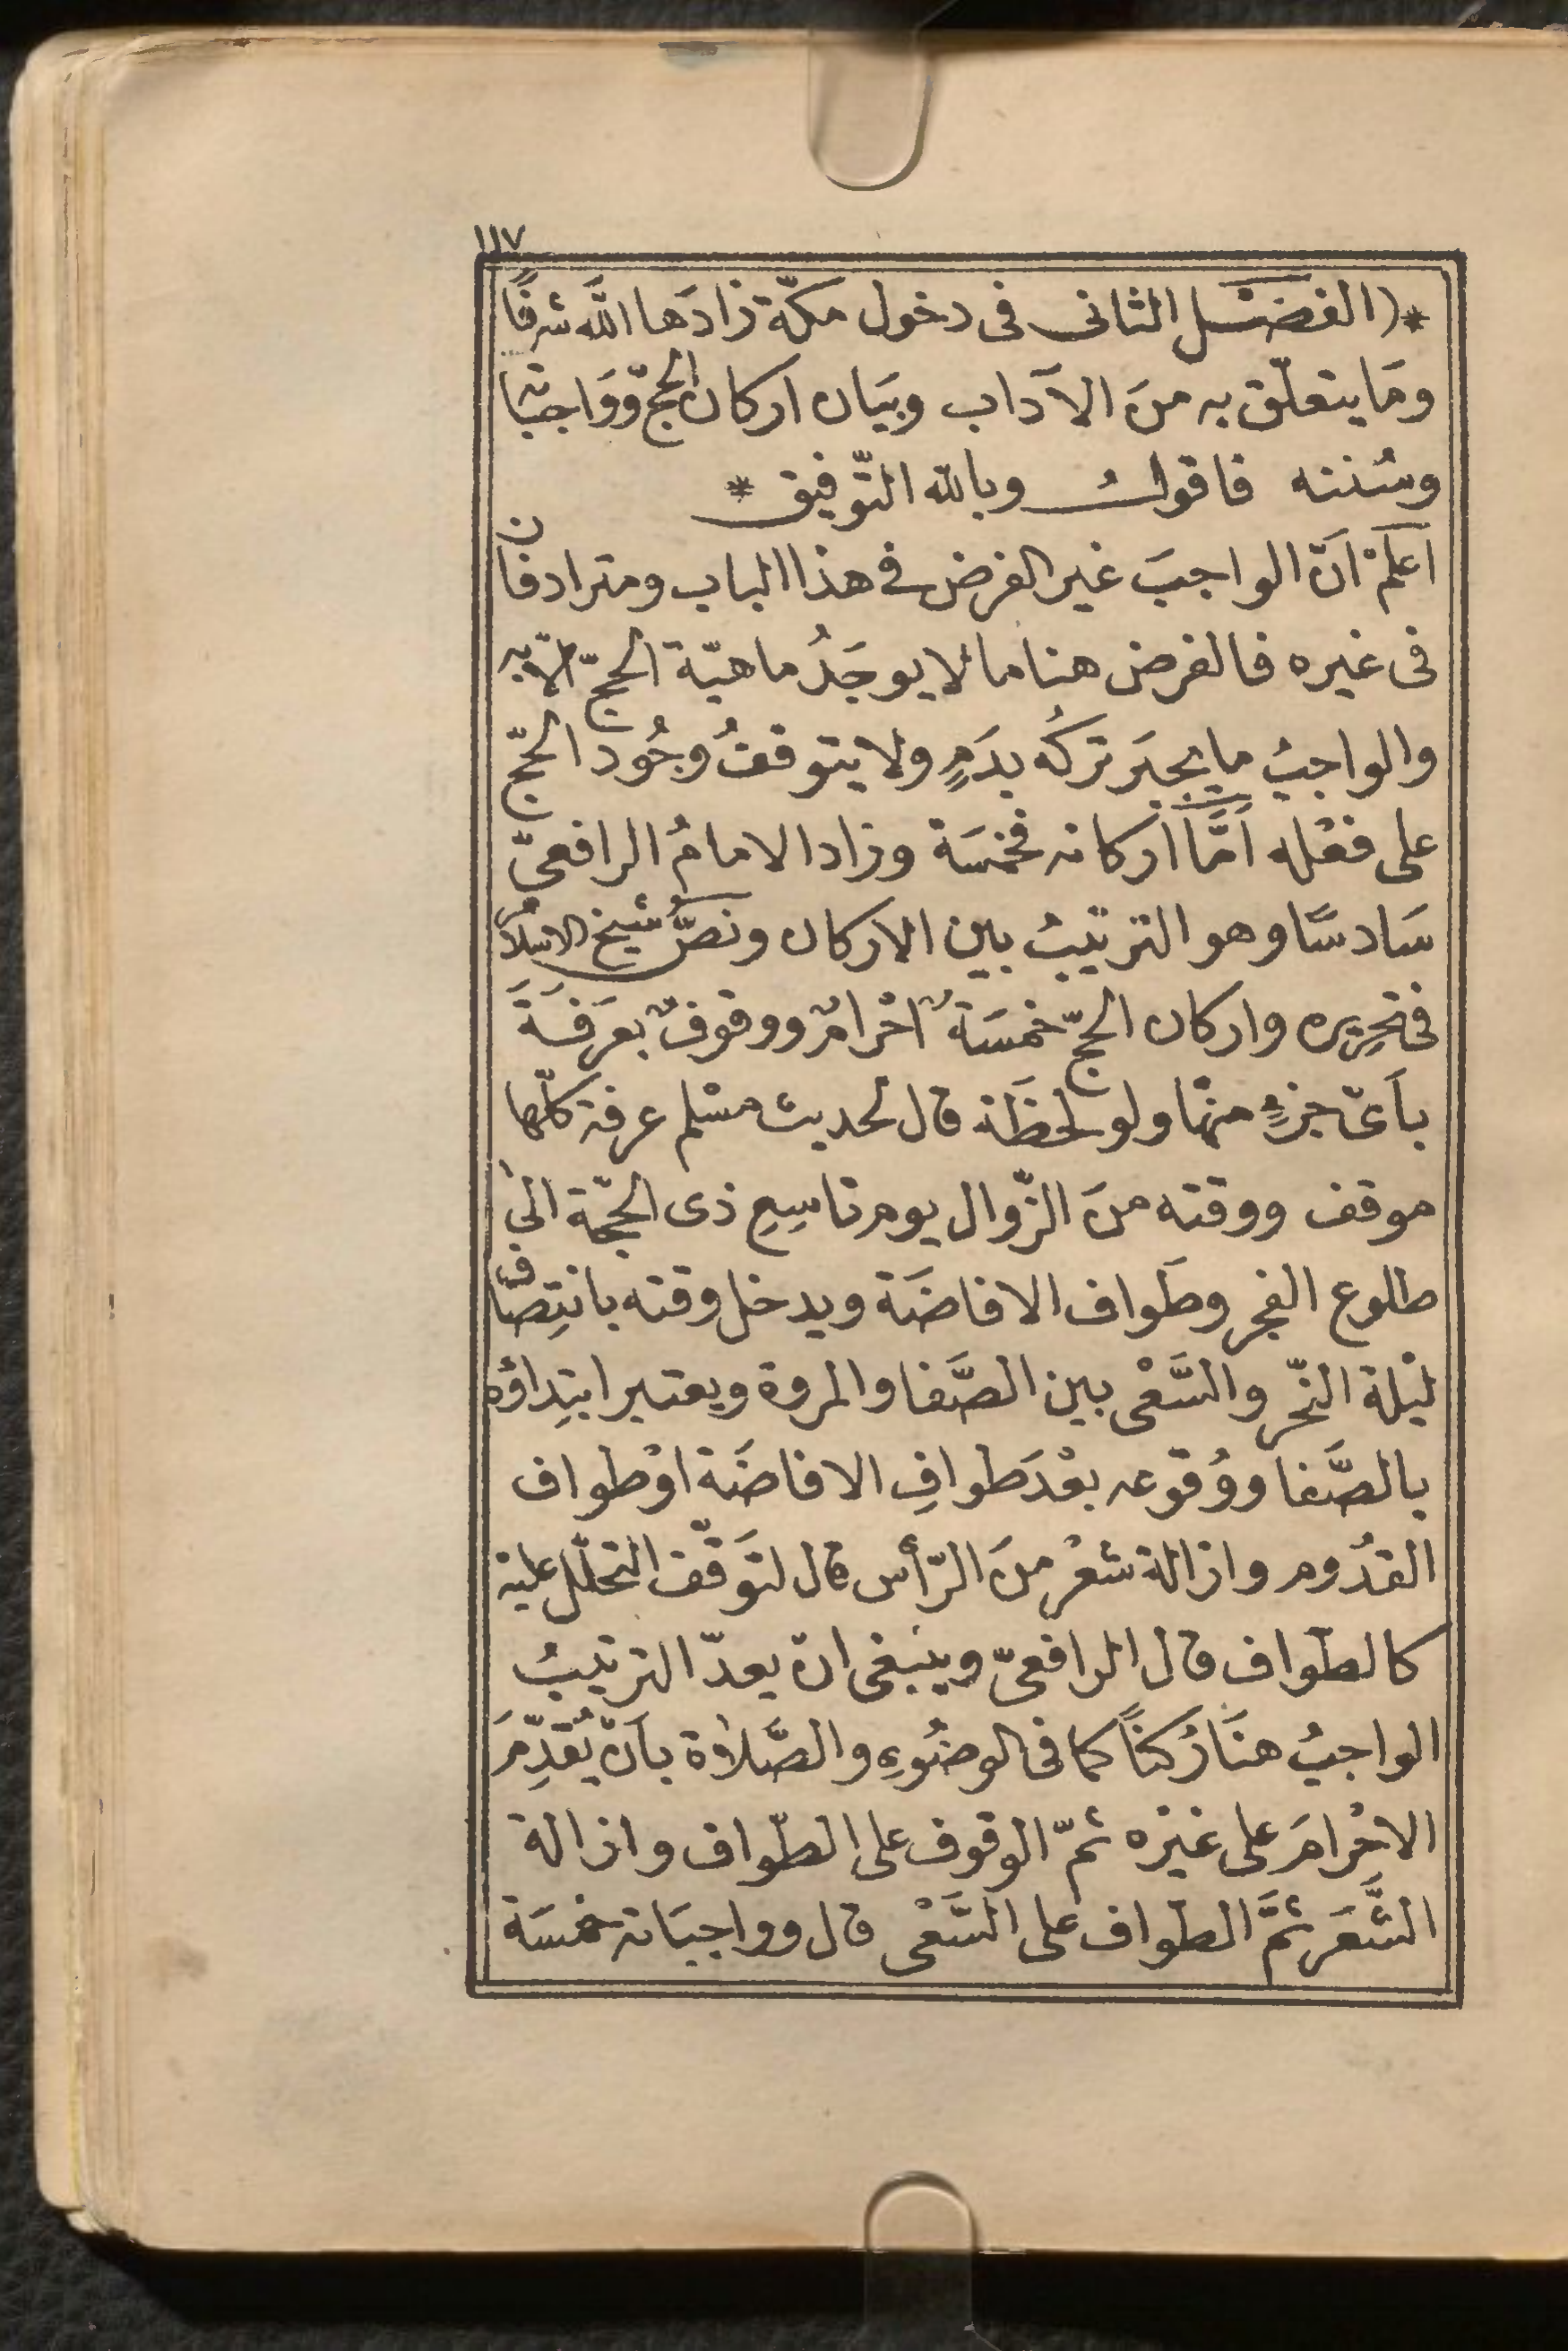 ١١٧
*( الفصْل الثانى فى دخول مكّة زادَها اللّه شرفًا
ومَا يتعلّق به منَ الآداب وبيَان اركان الحجّ ووَاجباته
وسُننه فاقولُ وبالله التّوفيق *
اعلمْ انّ الواجبَ غير الفرض فى هذا الباب ومترادفان
فى غيره فالفرض هنا ما لا يوجَدُ ماهيّة الحجّ الّا به
والواجبُ ما يجبَر تركُه بدَمٍ ولا يتوقفُ وجُود الحجّ
على فعْله امَّا اركانه فخمسَة وزاد الامامُ الرافعىّ
سَادسًا وهو الترتيبُ بين الاركان ونصُّ شيخ الاسلام
فى تحريره واركان الحجّ خمسَةٌ احْرامٌ ووقوفٌ بعَرَفَةَ
بأىّ جزءٍ منها ولو لحظَة قال لحديث مسْلم عرفة كلّها
موقف ووقته منَ الزّوال يوم تاسِعِ ذى الحجّة الىٰ
طلوع الفجر وطَواف الافاضَة ويدخل وقته بانتِصَاف
ليْلة النّحر والسَّعْى بين الصَّفا والمروة ويعتبر ابتِداؤه
بالصَّفا ووُقوعه بعْدَ طوافِ الافاضَة اوْ طواف
القدُوم وازالة شعْر منَ الرّأس قال لتوَقّف التحلّل عليْه
كالطّواف قال الرافعىّ وينْبغى ان يعدّ الترتيبُ
الواجبُ هنَا رُكنًا كما فى الوضُوءِ والصَّلٰوة بأنْ يُقدِّمَ
الاحْرامَ على غيْره ثمّ الوقوف على الطّواف وازالة
الشَّعَر ثمَّ الطواف على السَّعْى قال وواجبَاته خمسَة